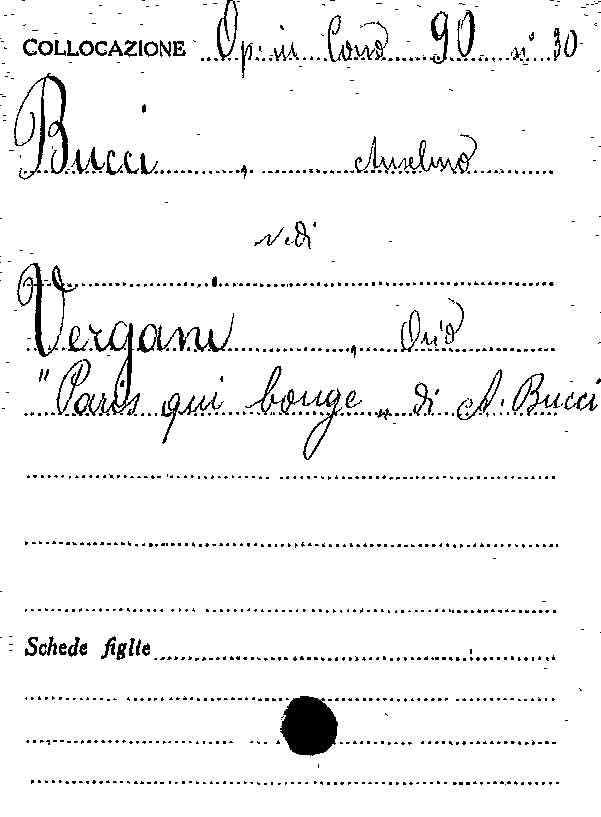 COLLOCAZIONE Op. in Cons 90 n° 30
Bucci, Anselmo
vedi
Vergani, Orio
"Paris qui bouge„ di A. Bucci
Schede figlie